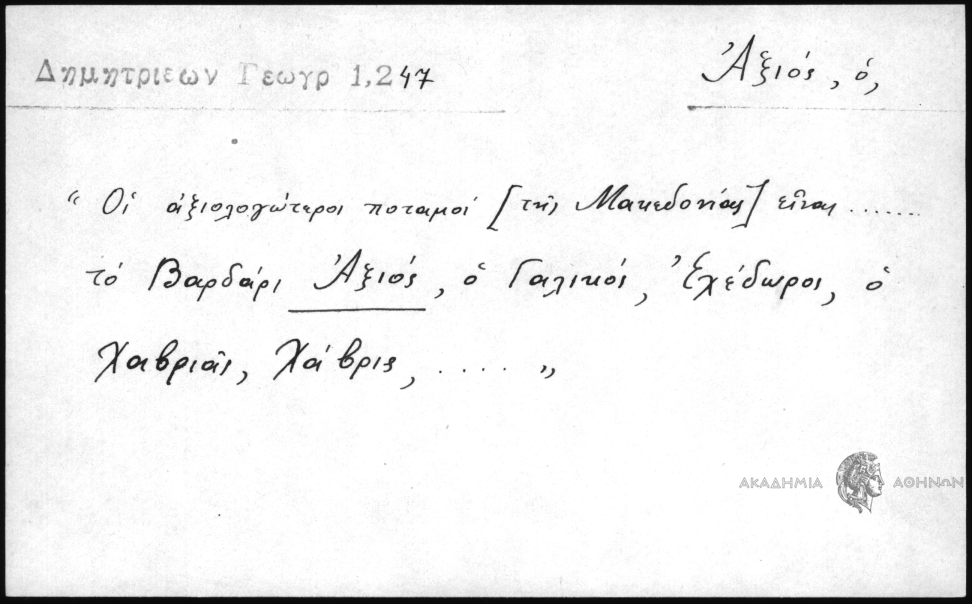 Δημητριεων Γεωγρ 1,247
Ἀξιός, ὁ,
“ Οἱ ἀξιολογώτεροι ποταμοί [τῆς Μακεδονίας] εἶναι ........
τό Βαρδάρι Ἀξιός, ὁ Γαλικός, Ἐχέδωρος, ὁ
Χαβριᾶς, Χάβρις, . . . . „
ΑΚΑΔΗΜΙΑ ΑΘΗΝΩΝ